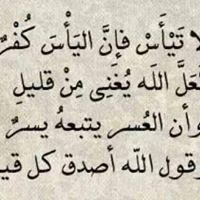 لا تَيْأَسْ فإِنَّ اليَأْسَ كُفْرٌ
لعَلَّ اللَه يُغنِى مِنْ قليلِ
وأن العُسر يتبعهُ يسرٌ
وقول اللّه أصدق كل